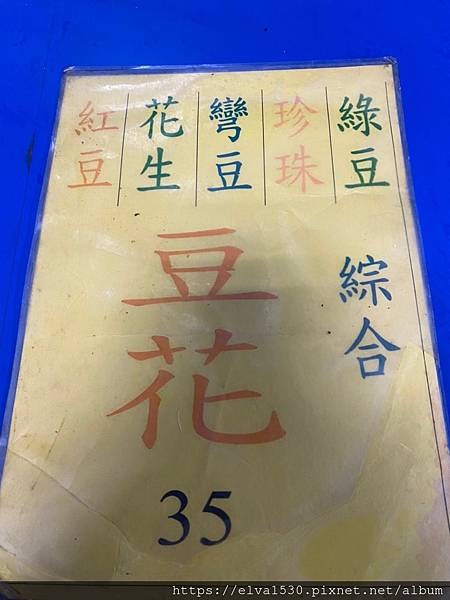 綠豆
珍珠
彎豆
花生
紅豆
綜合
豆花
35
https://elva1530.pixnet.net/album